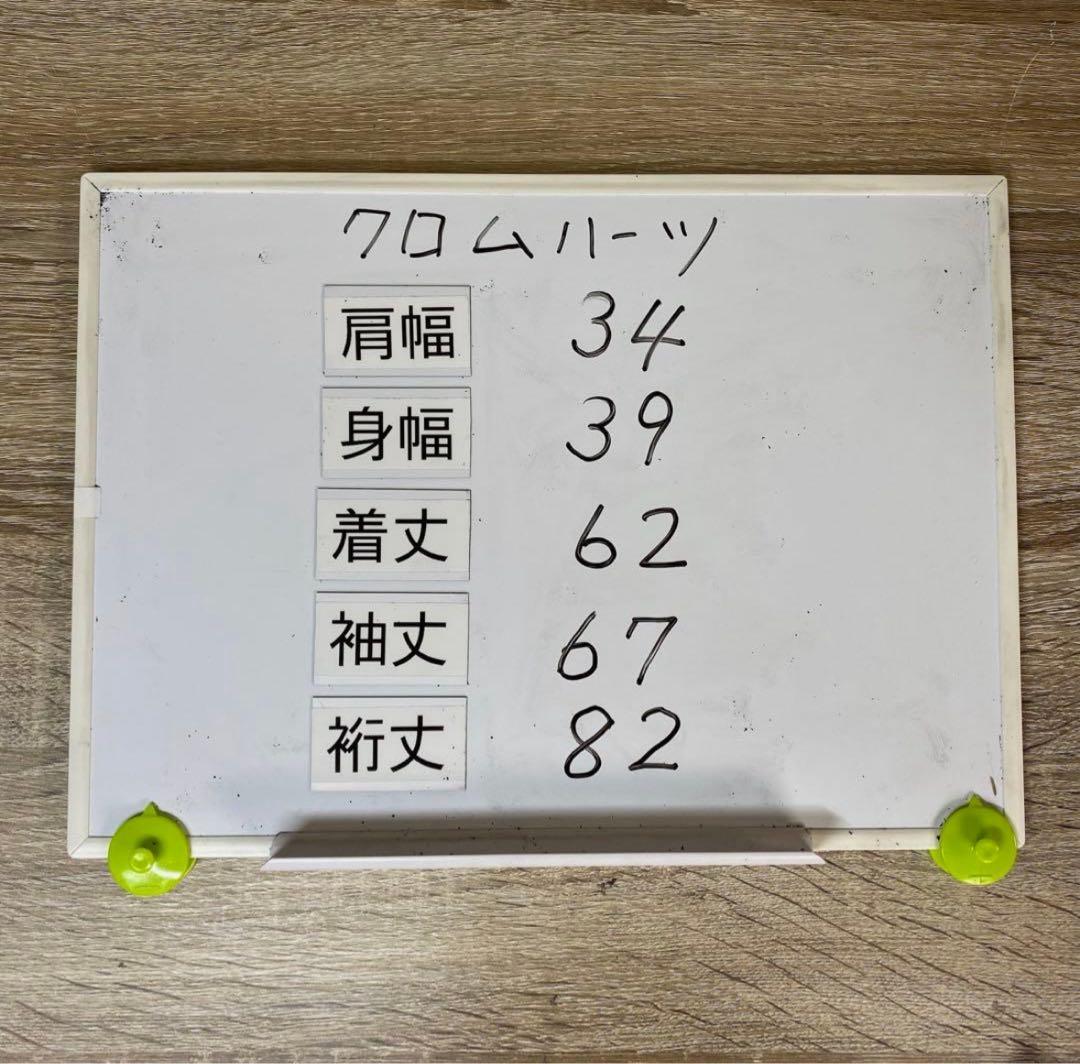 クロムハーツ
肩幅 34
身幅 39
着丈 62
袖丈 67
裄丈 82